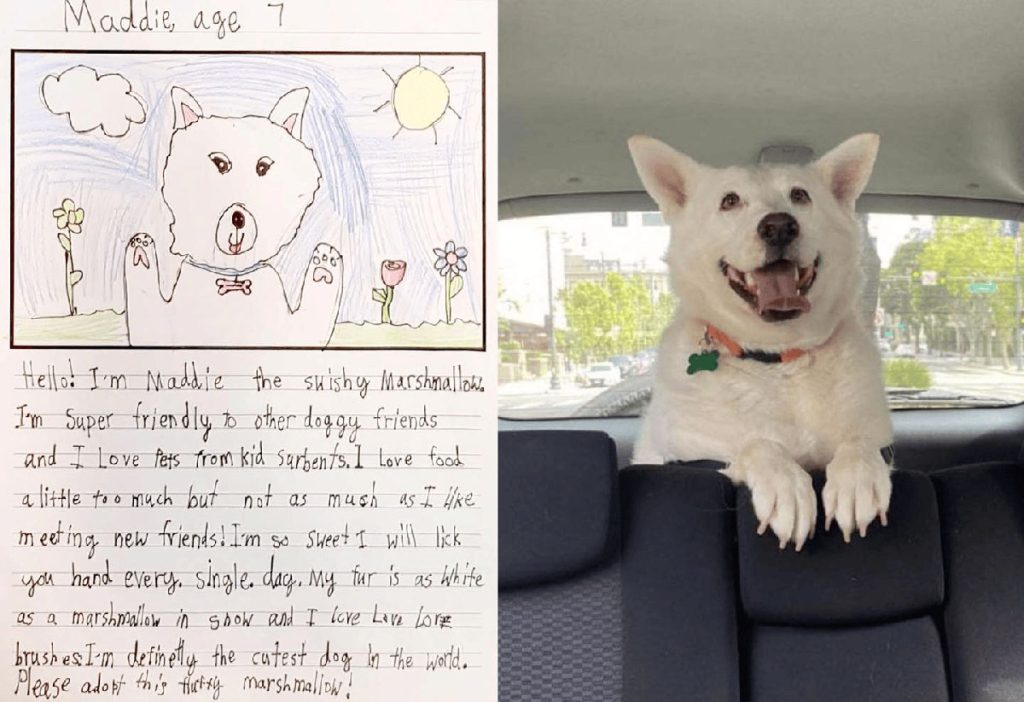 Maddie, age 7
Hello! I'm Maddie the swishy Marshmallow.
I'm super friendly to other doggy friends
and I Love Pets from kid surbents. I love food
a little too much but not as mush as I like
meeting new friends! I'm so sweet I will lick
you hand every. single. day. My fur is as white
as a marshmallow in snow and I love Love Love
brushes. I'm definetly the cutest dog in the world.
Please adopt this fluffy marshmallow!